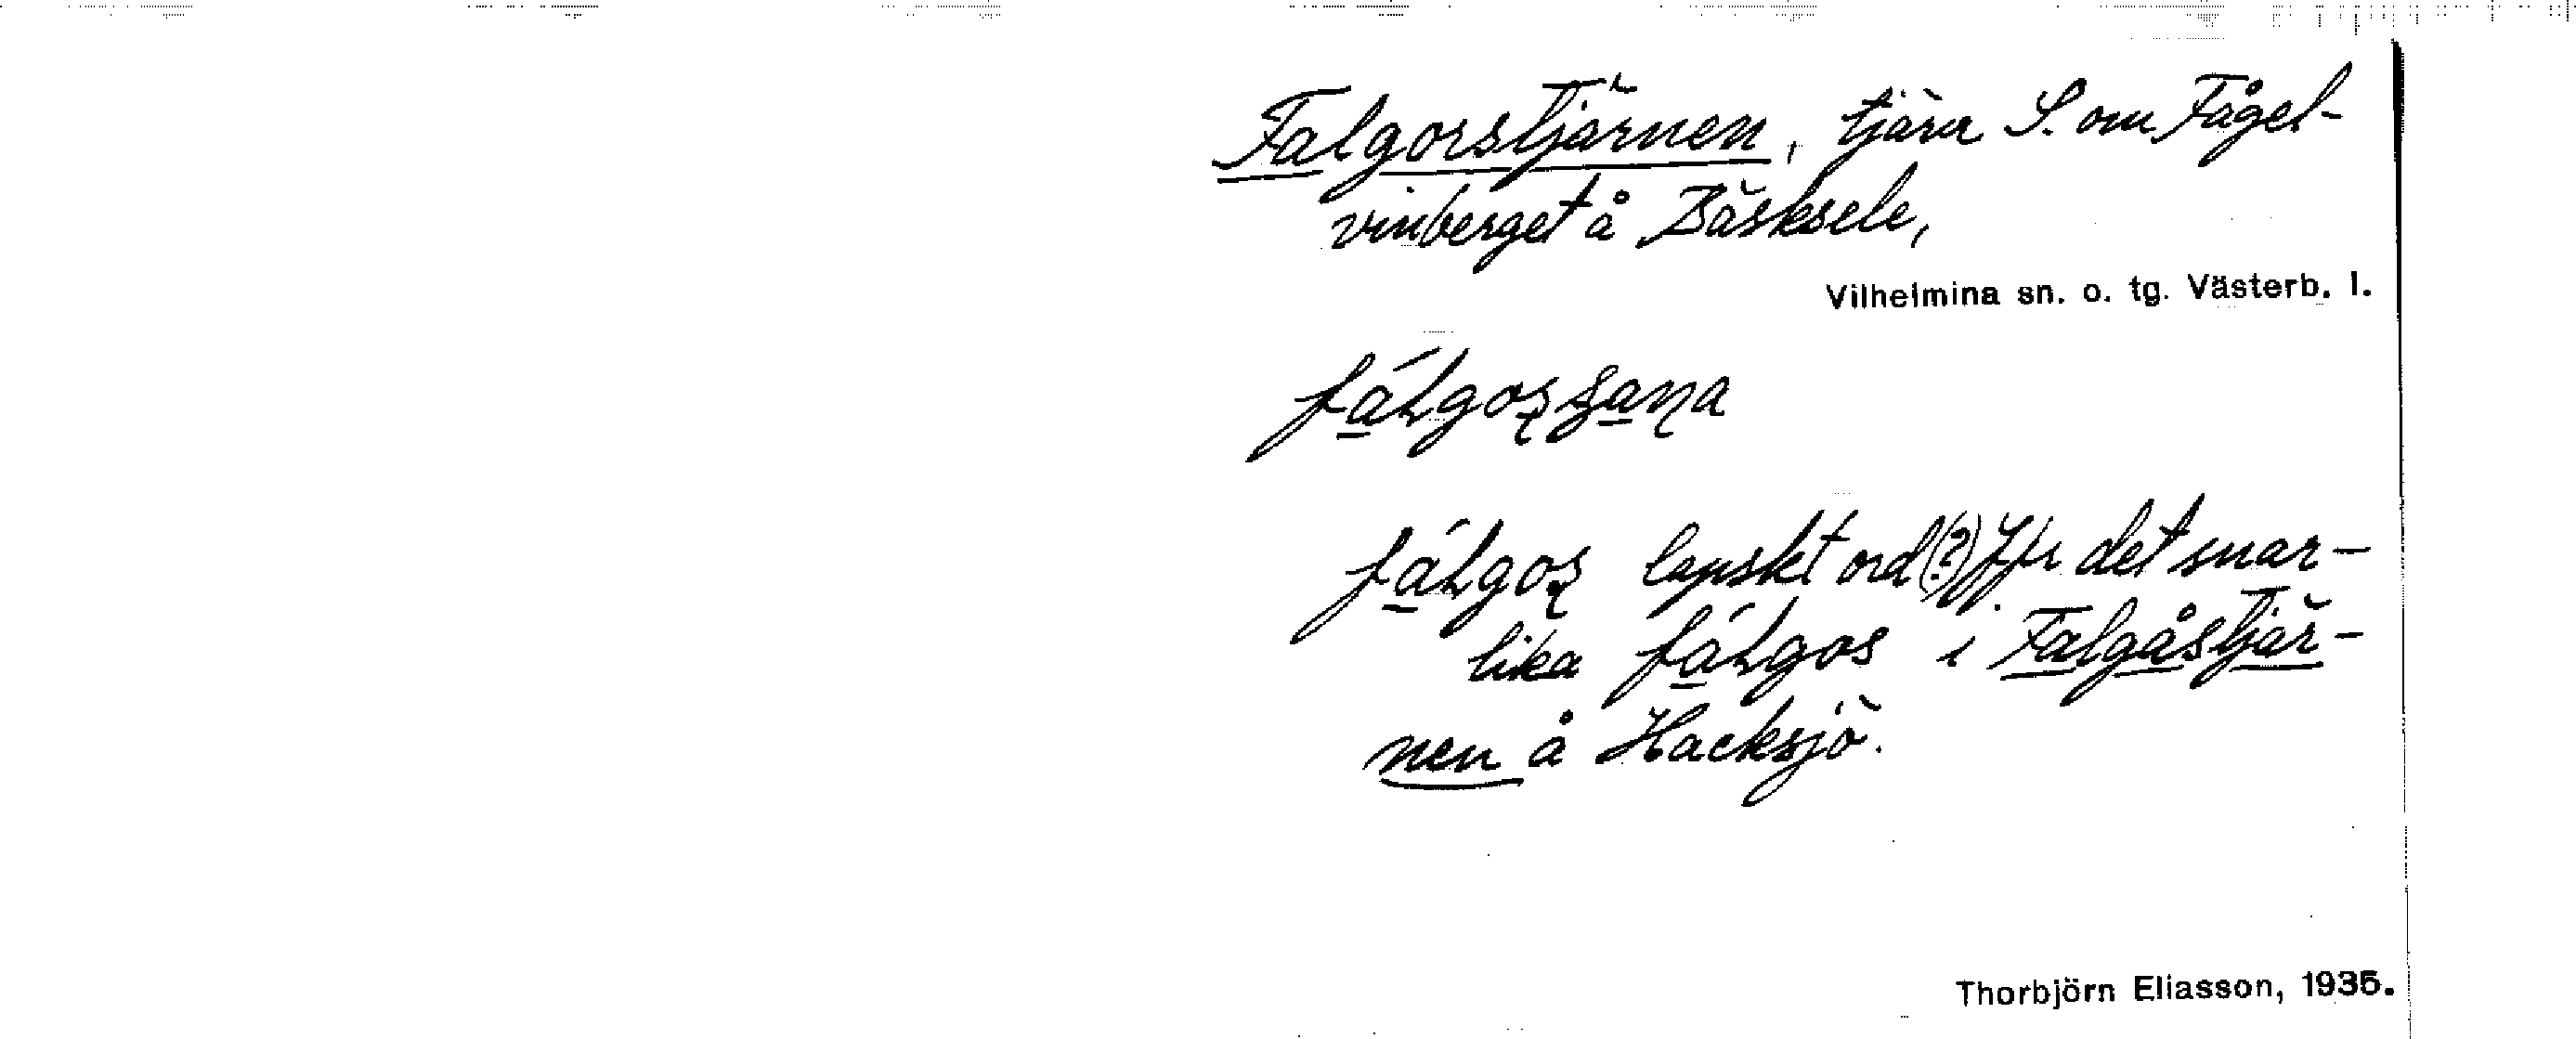 Falgorstjärnen, tjärn S. om Fågel-
vinberget å Bäsksele,
Vilhelmina sn. o. tg. Västerb. l.
lapskt ord (?) Jfr det snar-
lika fálgos i Falgåstjär-
nen å Hacksjö.
Thorbjörn Eliasson, 1935.